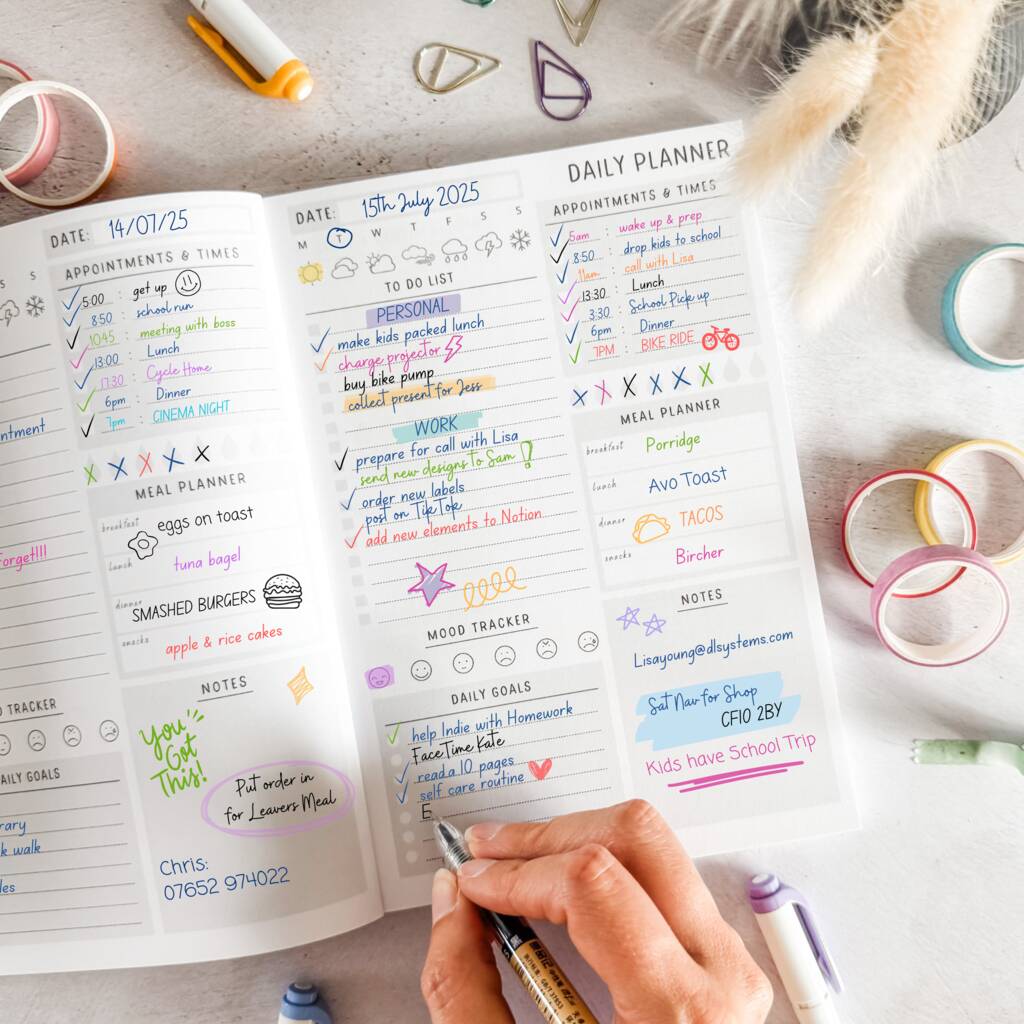 S
DATE: 14/07/25
APPOINTMENTS & TIMES
5:00 : get up
8:50 : school run
10:45 : meeting with boss
13:00 : Lunch
17:30 : Cycle Home
6pm : Dinner
7pm : CINEMA NIGHT
MEAL PLANNER
breakfast eggs on toast
lunch tuna bagel
dinner SMASHED BURGERS
snacks apple & rice cakes
NOTES
You've
Got
This!
Put order in
for Leavers Meal
Chris:
07652 974022
ntment
orget!!!
TRACKER
AILY GOALS
rary
k walk
les
DATE: 15th July 2025
M T W T F S S
TO DO LIST
PERSONAL
make kids packed lunch
charge projector
buy bike pump
collect present for Jess
WORK
prepare for call with Lisa
send new designs to Sam!
order new labels
post on TikTok
add new elements to Notion
MOOD TRACKER
DAILY GOALS
help Indie with Homework
FaceTime Kate
read a 10 pages
self care routine
E
DAILY PLANNER
APPOINTMENTS & TIMES
5am : wake up & prep
8:50 : drop kids to school
11am : call with Lisa
13:30 : Lunch
3:30 : School Pick up
6pm : Dinner
7PM : BIKE RIDE
MEAL PLANNER
breakfast Porridge
lunch Avo Toast
dinner TACOS
snacks Bircher
NOTES
Lisayoung@dlsystems.com
Sat Nav for Shop
CF10 2BY
Kids have School Trip